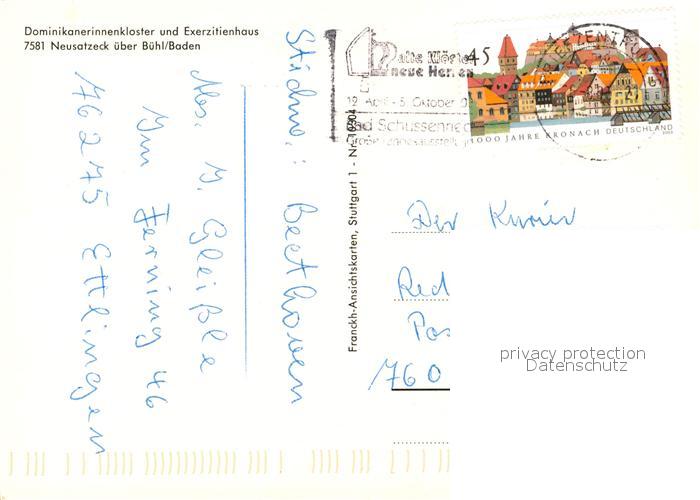 Dominikanerinnenkloster und Exerzitienhaus
7581 Neusatzeck über Bühl/Baden
Stichw.: Beethoven
Abs. M. Gleißle
Im Ferning 46
76275 Ettlingen
Franckh-Ansichtskarten, Stuttgart 1 - Nr.
alte Klöster
neue Herren
12. April - 5. Oktober
Bad Schussenried
Große Landesausstellung
45
1000 JAHRE KRONACH DEUTSCHLAND
2003
Der Kurier
Red
Pos
760
privacy protection
Datenschutz